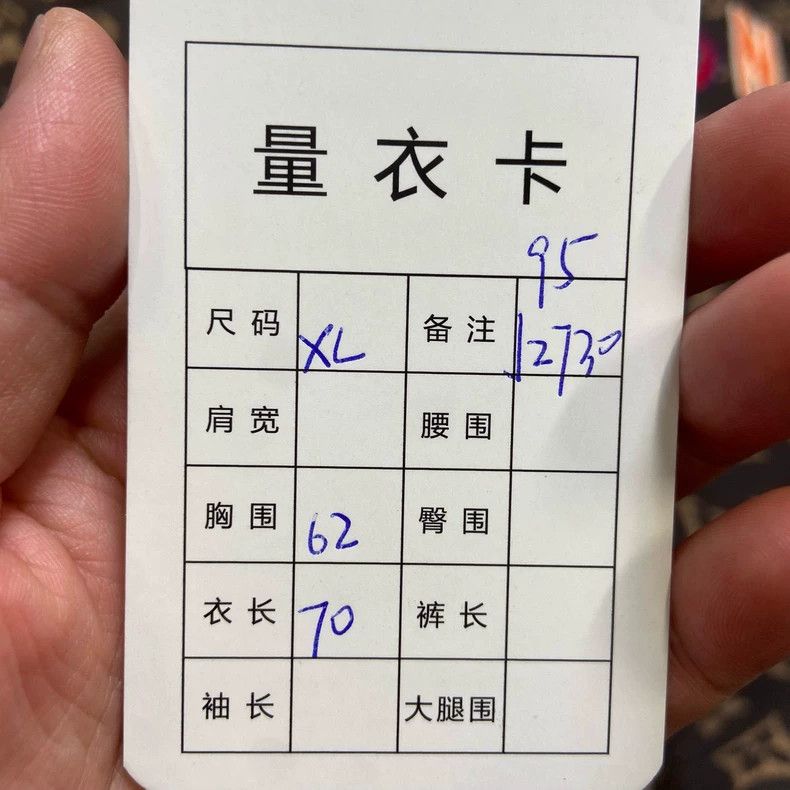 量衣卡
95
尺码 XL 备注 12730
肩宽 腰围
胸围 62 臀围
衣长 70 裤长
袖长 大腿围